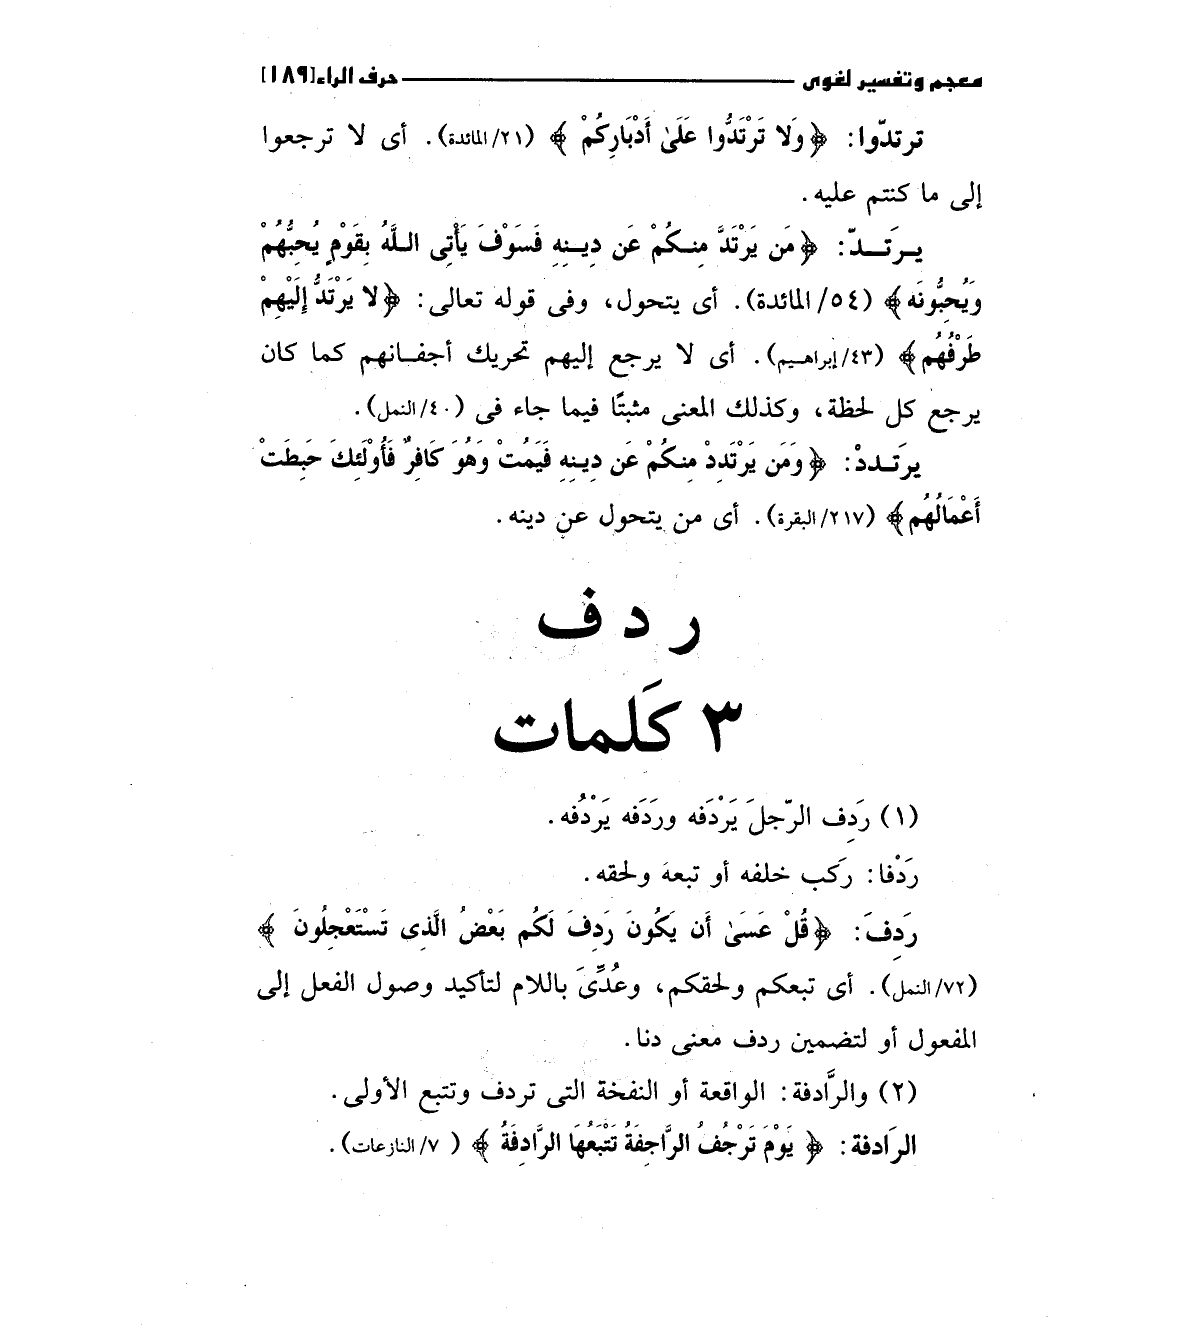 معجم وتفسير لغوى ــــــ حرف الراء[١٨٩]
ترتدّوا: ﴿وَلا تَرْتَدُّوا عَلَىٰ أَدْبَارِكُمْ ﴾ (٢١/المائدة). أى لا ترجعوا
إلى ما كنتم عليه.
يـرَتَـــدّ: ﴿مَن يَرْتَدَّ مِنـكُمْ عَن دِيــنِهِ فَسَوْفَ يَأْتِى الـلَّهُ بِقَوْمٍ يُحِبُّهُمْ
وَيُحِبُّونَه﴾ (٥٤/ المائدة). أى يتحول، وفى قوله تعالى: ﴿لا يَرْتَدُّ إِلَيْهِمْ
طَرْفُهُم﴾ (٤٣/إبراهـيم). أى لا يرجع إليهم تحريك أجفـانهم كما كان
يرجع كل لحظة، وكذلك المعنى مثبتًا فيما جاء فى (٤٠/النمل).
يرتَـددْ: ﴿وَمَن يَرْتَدِدْ مِنكُمْ عَن دِيـنِهِ فَيَمُتْ وَهُوَ كَافِرٌ فَأُوْلَئِكَ حَبِطَتْ
أَعْمَالُهُم﴾ (٢١٧/البقرة). أى من يتحول عن دينه.
ر د ف
٣ كَلمات
(١) رَدِف الرّجلَ يَرْدَفه ورَدَفه يَرْدُفه.
رَدْفا: ركَب خلفه أو تبعهَ ولحقه.
رَدِفَ: ﴿قُلْ عَسَىٰ أَن يَكُونَ رَدِفَ لَكُم بَعْضُ الَّذِى تَسْتَعْجِلُونَ ﴾
(٧٢/النمل). أى تبعكم ولحقكم، وعُدِّىَ باللام لتأكيد وصول الفعل إلى
المفعول أو لتضمين ردف معنى دنا.
(٢) والرَّادفة: الواقعة أو النفخة التى تردف وتتبع الأولى.
الرَادفة: ﴿ يَوْمَ تَرْجُفُ الرَّاجِفَةُ تَتْبَعُهَا الرَّادِفَةُ ﴾ ( ٧/ النازعات).